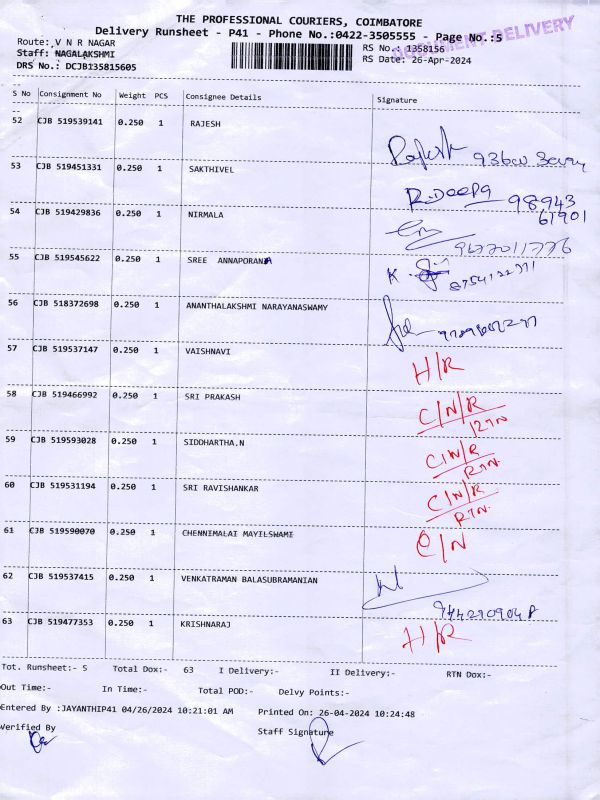 THE PROFESSIONAL COURIERS, COIMBATORE
Delivery Runsheet - P41 - Phone No.:0422-3505555 - Page No.:5
DOCUMENT DELIVERY
Route: V N R NAGAR
RS No.: 1358156
Staff: NAGALAKSHMI
RS Date: 26-Apr-2024
DRS No.: DCJB135815605
S No Consignment No Weight PCS Consignee Details Signature
52 CJB 519539141 0.250 1 RAJESH
Rajesh
53 CJB 519451331 0.250 1 SAKTHIVEL
R.Deepa 98943
61901
54 CJB 519429836 0.250 1 NIRMALA
9677011776
55 CJB 519545622 0.250 1 SREE ANNAPORANA
K.
56 CJB 518372698 0.250 1 ANANTHALAKSHMI NARAYANASWAMY
57 CJB 519537147 0.250 1 VAISHNAVI
H/R
58 CJB 519466992 0.250 1 SRI PRAKASH
C/N/R
RTN
59 CJB 519593028 0.250 1 SIDDHARTHA.N
C/N/R
RTN.
60 CJB 519531194 0.250 1 SRI RAVISHANKAR
C/N/R
RTN.
61 CJB 519590070 0.250 1 CHENNIMALAI MAYILSWAMI
O/N
62 CJB 519537415 0.250 1 VENKATRAMAN BALASUBRAMANIAN
63 CJB 519477353 0.250 1 KRISHNARAJ
H/R
Tot. Runsheet:- 5 Total Dox:- 63 I Delivery:- II Delivery:- RTN Dox:-
Out Time:- In Time:- Total POD:- Delvy Points:-
Entered By :JAYANTHIP41 04/26/2024 10:21:01 AM Printed On: 26-04-2024 10:24:48
Verified By Staff Signature